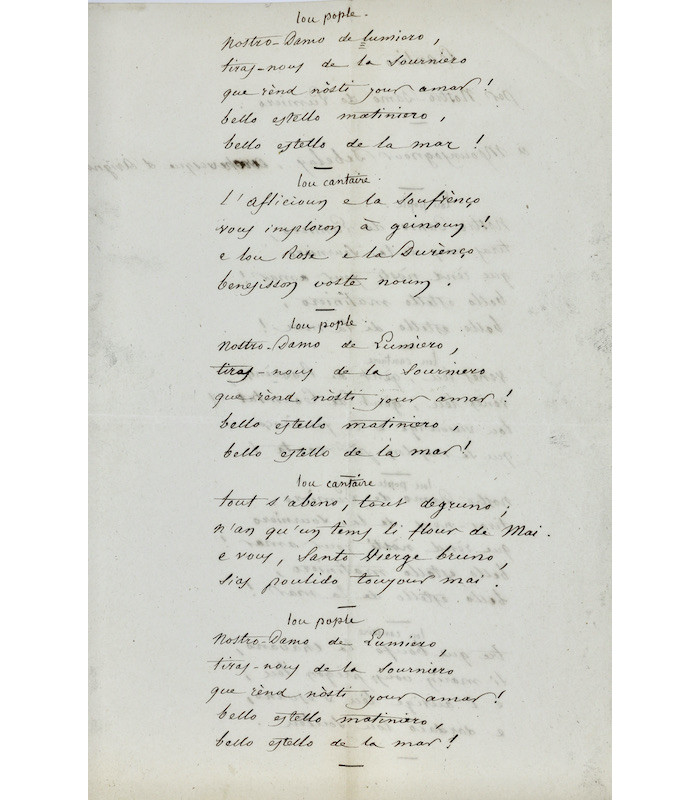 lou pople.
Nostro-Damo de lumiero,
tiras-nous de la sourniero
que rènd nòsti jour amar!
bello estello matiniero,
bello estello de la mar!
lou cantaire.
L'aflicioun e la soufrènço
vous imploron à geinoun!
e lou Rose e la Durènço
benesisson voste noum.
lou pople.
Nostro-Damo de Lumiero,
tiras-nous de la sourniero
que rènd nòsti jour amar!
bello estello matiniero,
bello estello de la mar!
lou cantaire
tout s'abeno, tout degruno;
n'an qu'un tèms li flour de Mai.
e vous, Santo Vierge bruno,
sias poulido toujour mai!
lou pople
Nostro-Damo de Lumiero,
tiras-nous de la sourniero
que rènd nòsti jour amar!
bello estello matiniero,
bello estello de la mar!